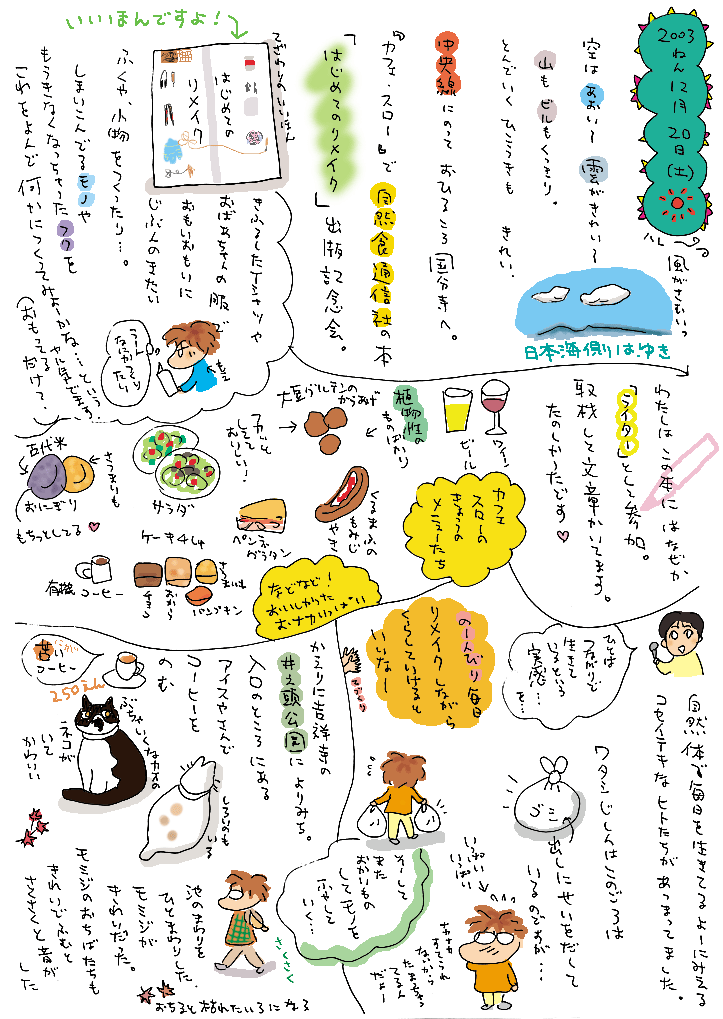 2003
ねん12月
20日
(土)
風がさむいっ
空は あおい〜 雲がきれい〜
山も ビルもくっきり。
とんでいく ひこうきも きれい。
日本海側りはゆき
中央線にのって おひるころ 国分寺へ。
「カフェ・スロー」で 自然食通信社の本
「はじめてのリメイク」出版記念会。
いいほんですよ！
てざわりのいいほん
はじめての
リメイク
きふるしたTシャツや
おばあちゃんの服で
おもいおもいに
じぶんのきたい
ふくや、小物をつくったり…。
しまいこんでるモノや
もうきなくなっちゃったフクを
これをよんで 何かにつくってみよーかな…という
キモチになります。
(おもってるだけ？)
わたしはこの本にはなぜか
「ライター」として参加。
取材して文章かいてます。
たのしかったです♥
カフェ
スローの
きょうの
メニューたち
ワイン
ビール
植物性の
ものばかり
大豆グルテンの
からあげ
くるまふの
もみじ
やき
ペンネ
グラタン
サラダ
古代米
さつまいも
おにぎり
もちっとしてる♥
ケーキ4しゅ
チョコ
おから
パンプキン
有機
コーヒー
などなど！
おいしかった
おナカいっぱい
自然体で毎日を生きてるよーにみえる
コセイテキなヒトたちが あつまってました。
ひとは
つながりで
生きて
いるという
実感
を…
の〜んびり毎日
リメイクしながら
くらしていけると
いいな〜
ワタシじしんは このごろは
ゴミ
出しにせいをだして
いるのですが…
そーして
また
おかいもの
してモノを
ふやして
いく…
いっぱい
いっぱい
かえりに吉祥寺の
井之頭公園によりみち。
入口のところにある
アイスやさんで
コーヒーを
のむ
苦い
コーヒー
250えん
ぶちゃいくなカオの
ネコが
いて
かわいい
しろのも
いる
池のまわりを
ひとまわりした。
モミジが
きれいだった。
モミジのおちばたちも
きれいでふむと
さくさくと音が
した
さくさく
おちると枯れたいろになる